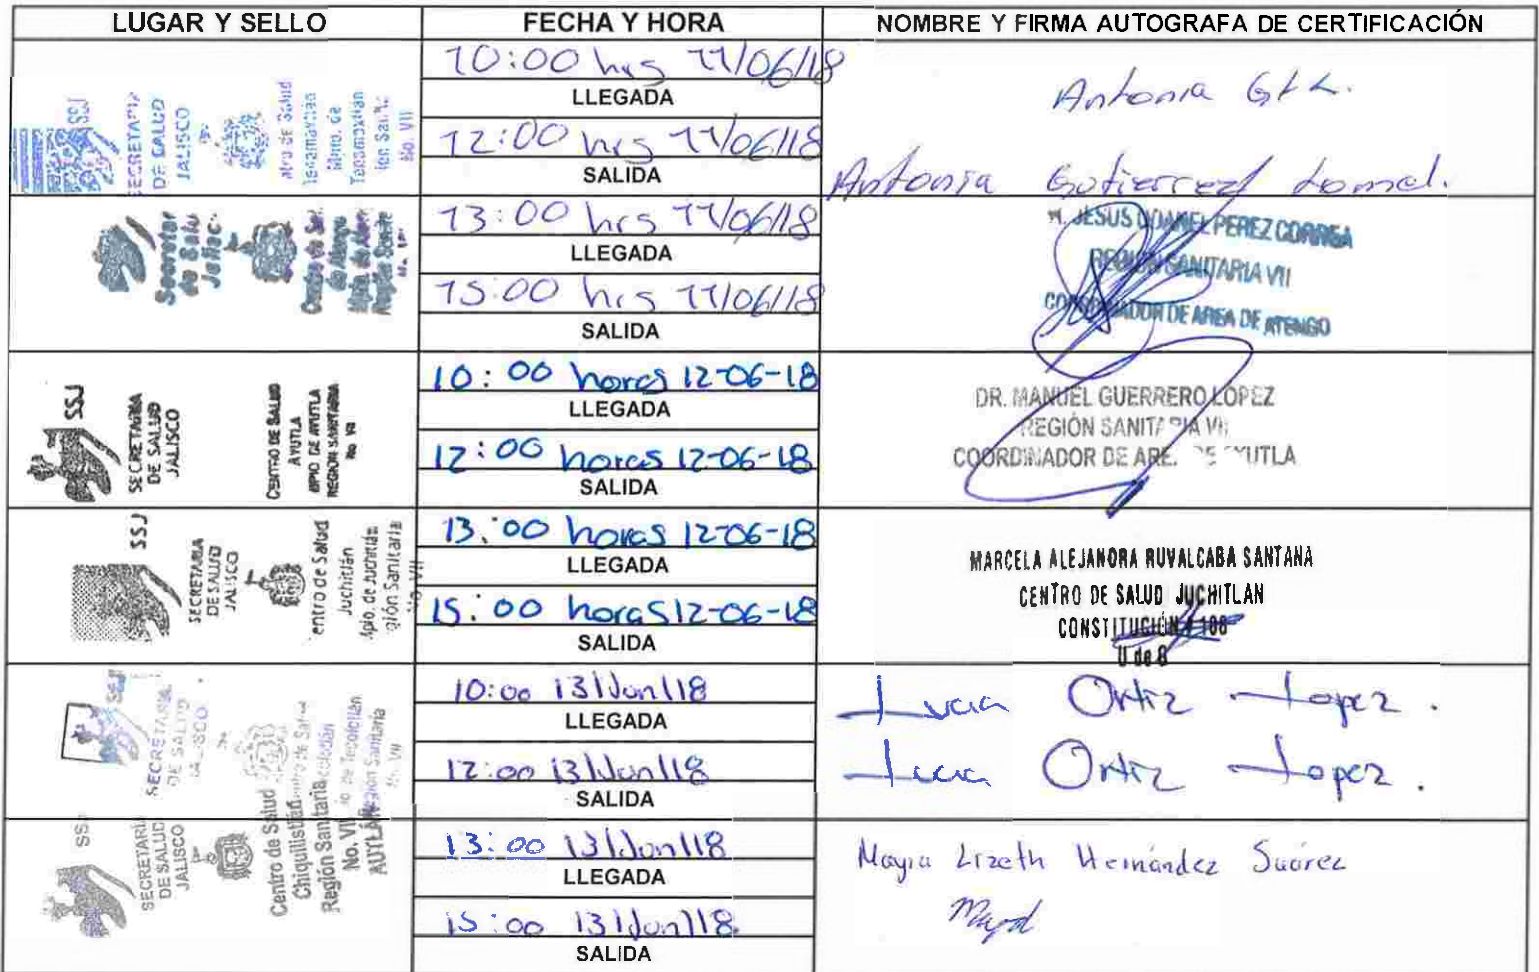 LUGAR Y SELLO FECHA Y HORA NOMBRE Y FIRMA AUTOGRAFA DE CERTIFICACIÓN
SSJ
SECRETARIA
DE SALUD
JALISCO
Tenamaxtlan
No. VII
10:00 hrs 11/06/18
LLEGADA
12:00 hrs 11/06/18
SALIDA
Antonia Gtz L.
Antonia Gutierrez Lomel.
de Salu
13:00 hrs 11/06/18
LLEGADA
15:00 hrs 11/06/18
SALIDA
JESUS PEREZ CORREA
REGION SANITARIA VII
COORDINADOR DE AREA DE ATENGO
SSJ
SECRETARIA
DE SALUD
JALISCO
CENTRO DE SALUD
AYUTLA
MPIO DE AYUTLA
REGION SANITARIA
No VII
10:00 horas 12-06-18
LLEGADA
12:00 horas 12-06-18
SALIDA
DR. MANUEL GUERRERO LOPEZ
REGIÓN SANITARIA VII
COORDINADOR DE
SSJ
SECRETARIA
DE SALUD
JALISCO
entro de Salud
Juchitlán
pio. de Juchitlán
gión Sanitaria
No VII
13:00 horas 12-06-18
LLEGADA
15:00 horas 12-06-18
SALIDA
MARCELA ALEJANDRA RUVALCABA SANTANA
CENTRO DE SALUD JUCHITLAN
CONSTITUCIÓN # 108
U de G
SSJ
SECRETARIA
DE SALUD
JALISCO
10:00 13/Jun/18
LLEGADA
12:00 13/Jun/18
SALIDA
Lucia Ortiz Lopez.
Lucia Ortiz Lopez.
SSJ
SECRETARI
DE SALUD
JALISCO
Centro de Salud
Chiquilistlán
Región Sanitaria
No. VII
AUTLÁN
13:00 13/Jun/18
LLEGADA
15:00 13/Jun/18
SALIDA
Mayra Lizeth Hernández Suárez